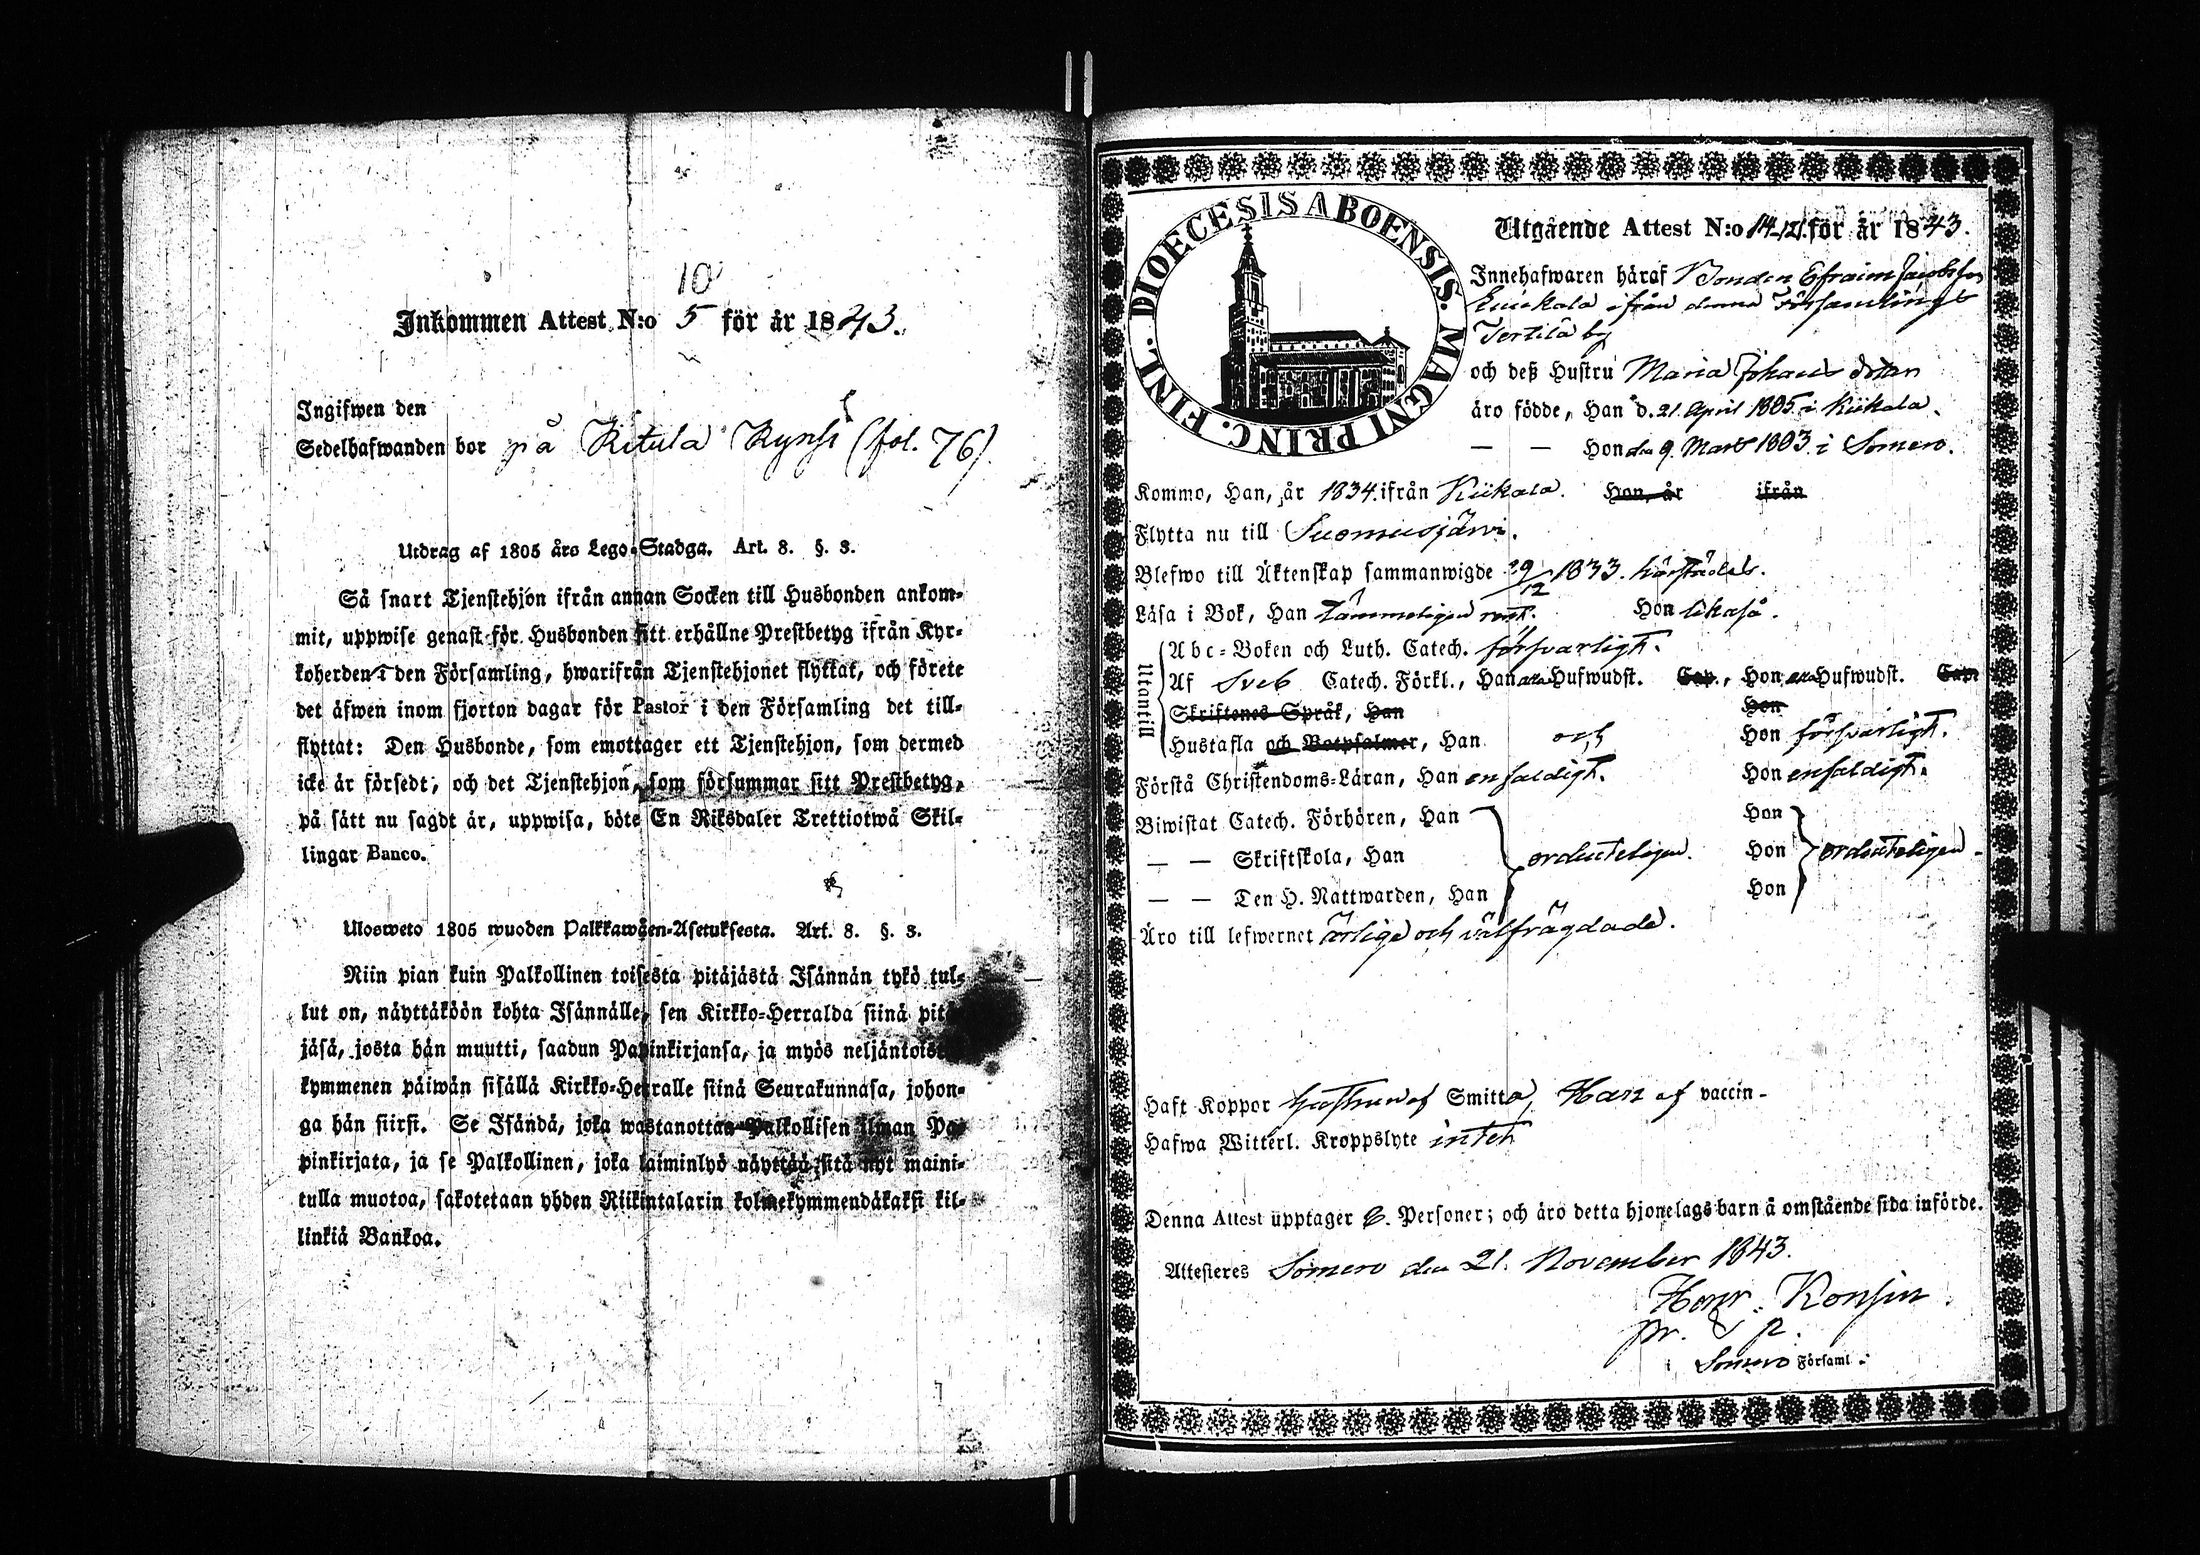 10
Inkommen Attest N:o 5 för år 1843.
Ingifwen den
Sedelhafwanden bor på Kitula Kynsi (fol. 76).
Utdrag af 1805 års Lego-Stadga. Art. 8. §. 3.
Så snart Tjenstehjon ifrån annan Socken till Husbonden ankom-
mit, uppwise genast för Husbonden sitt erhållne Prestbetyg ifrån Kyr-
koherden i den Församling, hwarifrån Tjenstehjonet flyttat, och förete
det äfwen inom fjorton dagar för Pastor i den Församling det till-
flyttat: Den Husbonde, som emottager ett Tjenstehjon, som dermed
icke är försedt, och det Tjenstehjon, som försummar sitt Prestbetyg,
på sätt nu sagdt är, uppwisa, böte En Riksdaler Trettiotwå Skil-
lingar Banco.
Ulosweto 1805 wuoden Palkkawäen-Asetuksesta. Art. 8. §. 3.
Niin pian kuin Palkollinen toisesta pitäjästä Isännän tykö tul-
lut on, näyttäköön kohta Isännälle, sen Kirkko-Herralda siinä pitä-
jäsä, josta hän muutti, saadun Papinkirjansa, ja myös neljäntoista
kymmenen päiwän sisällä Kirkko-Herralle siinä Seurakunnasa, johon-
ga hän siirsi. Se Isändä, joka wastanottaa Palkollisen ilman Pa-
pinkirjata, ja se Palkollinen, joka laiminlyö näyttää sitä nyt maini-
tulla muotoa, sakotetaan yhden Riikintalarin kolmekymmendäkaksi kil-
linkiä Bankoa.
DIOECESIS ABOENSIS. MAGNI PRINC. FINL.
Utgående Attest N:o 14 för år 1843.
Innehafwaren häraf Bonden Efraim Jacobsson
Kiikala ifrån denna Församlings
Terttilä by
och deß Hustru Maria Johans dotter
äro födde, Han d. 21 April 1805 i Kiikala.
— — Hon den 9 Mars 1803 i Somero.
Kommo, Han, år 1834 ifrån Kiikala. Hon, år ifrån
Flytta nu till Suomusjärvi.
Blefwo till Äktenskap sammanwigde 29/12 1833. härstädes.
Läsa i Bok, Han tämmeligen rent. Hon likaså.
Utantill
Abc-Boken och Luth. Catech. försvarligt.
Af Sveb Catech. Förkl., Han alla Hufwudst. Cap., Hon alla Hufwudst. Cap.
Skriftenes Språk, Han Hon
Hustafla och Botpsalmer, Han och Hon försvarligt.
Förstå Christendoms-Läran, Han enfaldigt. Hon enfaldigt.
Biwistat Catech. Förhören, Han Hon
— — Skriftskola, Han ordenteligen. Hon ordenteligen.
— — Den H. Nattwarden, Han Hon
Äro till lefwernet ärlige och välfrägdade.
Haft Koppor Hustrun af Smitta, Han af vaccin-
Hafwa Witterl. Kroppslyte intet
Denna Attest upptager Personer; och äro detta hjonelags barn å omstående sida införde.
Attesteres Somero den 21. November 1843.
Henr. Konsin
pr. & p.
i Somero Församl.